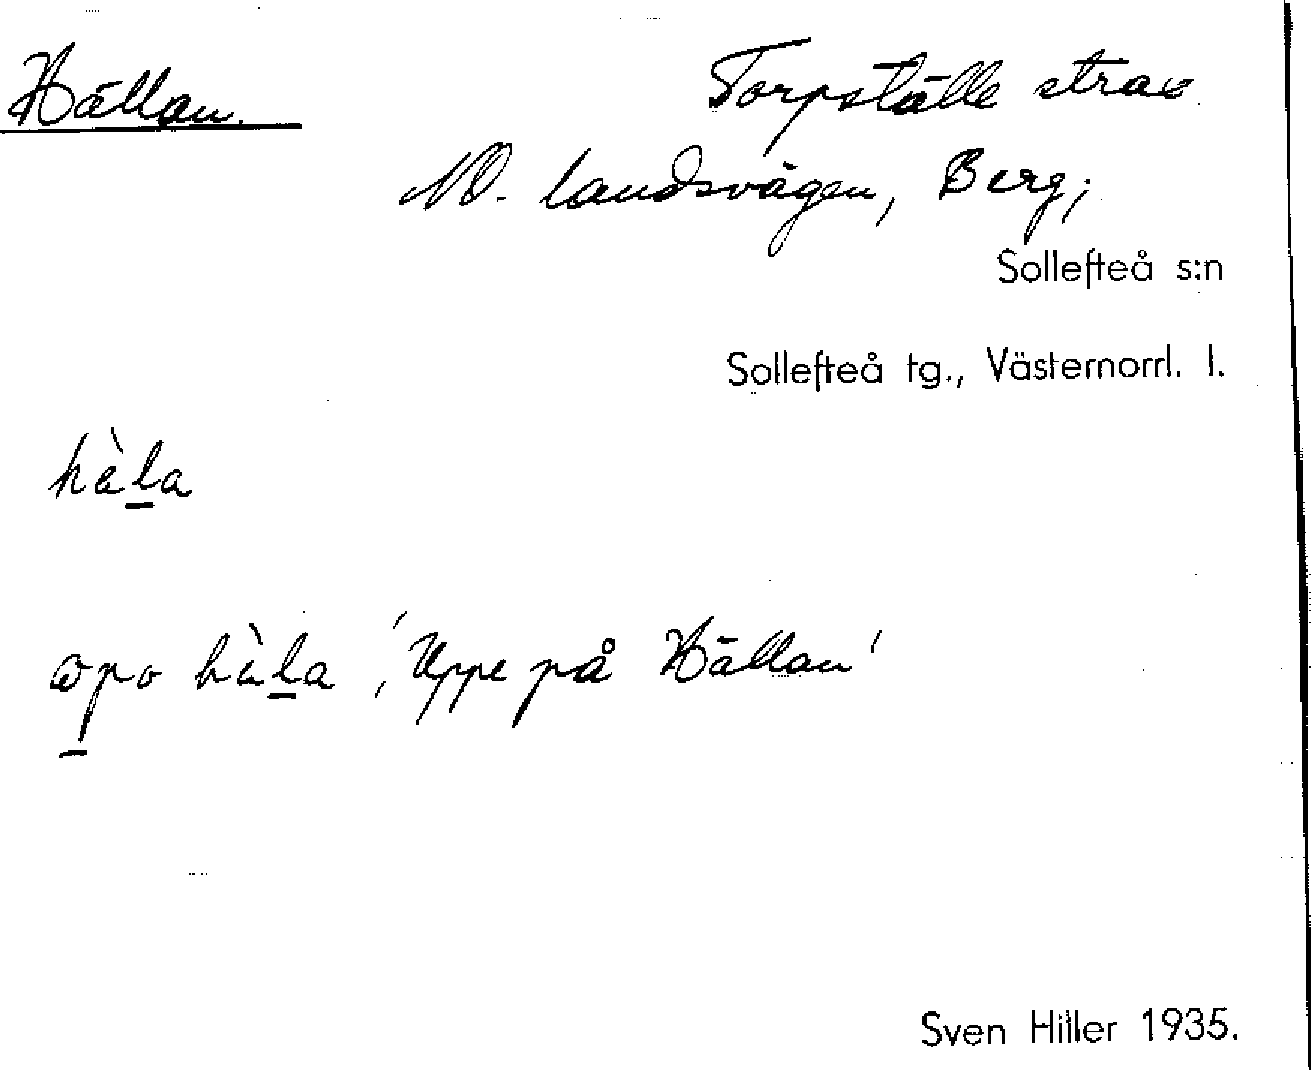 Hällan.
Torpställe strax
NO. landsvägen, Berg;
Sollefteå s:n
Sollefteå tg., Västernorrl. l.
hàl̲a
opo hàl̲a, 'Uppe på Hällan'
Sven Hiller 1935.